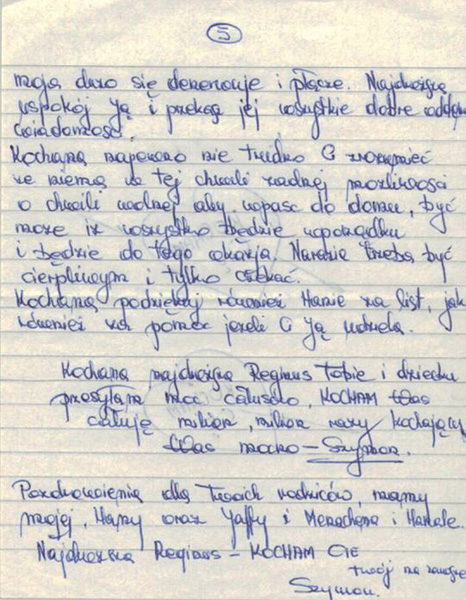 5
moja dużo się denerwuje i płacze. Najdroższa
uspokój ją i przekaż jej wszystkie dobre
wiadomości.
Kochana napewno nie trudno Ci zrozumieć
że niema w tej chwili żadnej możliwości
o chwili wolnej aby wpaść do domu, być
może iż wszystko będzie wporządku
i będzie do tego okazja. Narazie trzeba być
cierpliwym i tylko czekać.
Kochana podziękuj również Hanie za list, jak
również za pomoc jeżeli Ci ją udziela.
Kochana najdroższa Reginus Tobie i dziecku
przesyłam moc całusów, KOCHAM Was
całuję milion, milion razy kochający
Was mocno – Szymon.
Pozdrowienia dla Twoich rodziców, mamy
mojej, Hany oraz Jaffy i Menachema i
Najdroższa Reginus – KOCHAM CIĘ
twój na zawsze
Szymon.